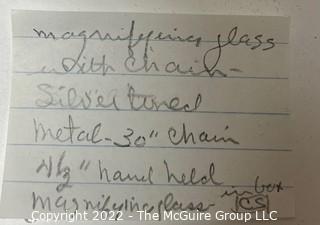 magnifying glass
with chain -
Silver toned
metal - 30" chain
4½" hand held
magnifying glass - in box
CS
Copyright 2022 - The McGuire Group LLC